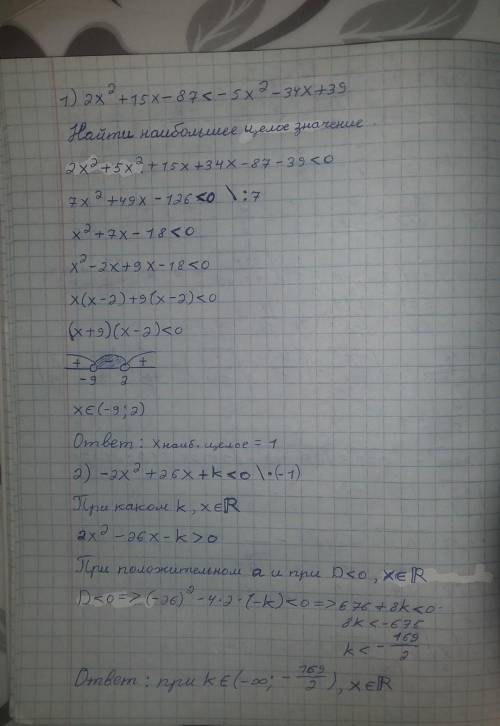 1) 2x² + 15x - 87 < -5x² - 34x + 39
Найти наибольшее целое значение.
2x² + 5x² + 15x + 34x - 87 - 39 < 0
7x² + 49x - 126 < 0 \ : 7
x² + 7x - 18 < 0
x² - 2x + 9x - 18 < 0
x(x - 2) + 9(x - 2) < 0
(x + 9)(x - 2) < 0
+ - +
-9 2
x ∈ (-9; 2)
Ответ: x наиб. целое = 1
2) -2x² + 26x + k < 0 \ · (-1)
При каком k, x ∈ ℝ
2x² - 26x - k > 0
При положительном a и при D < 0, x ∈ ℝ
D < 0 => (-26)² - 4 · 2 · (-k) < 0 => 676 + 8k < 0
8k < -676
k < -169/2
Ответ: при k ∈ (-∞; -169/2), x ∈ ℝ